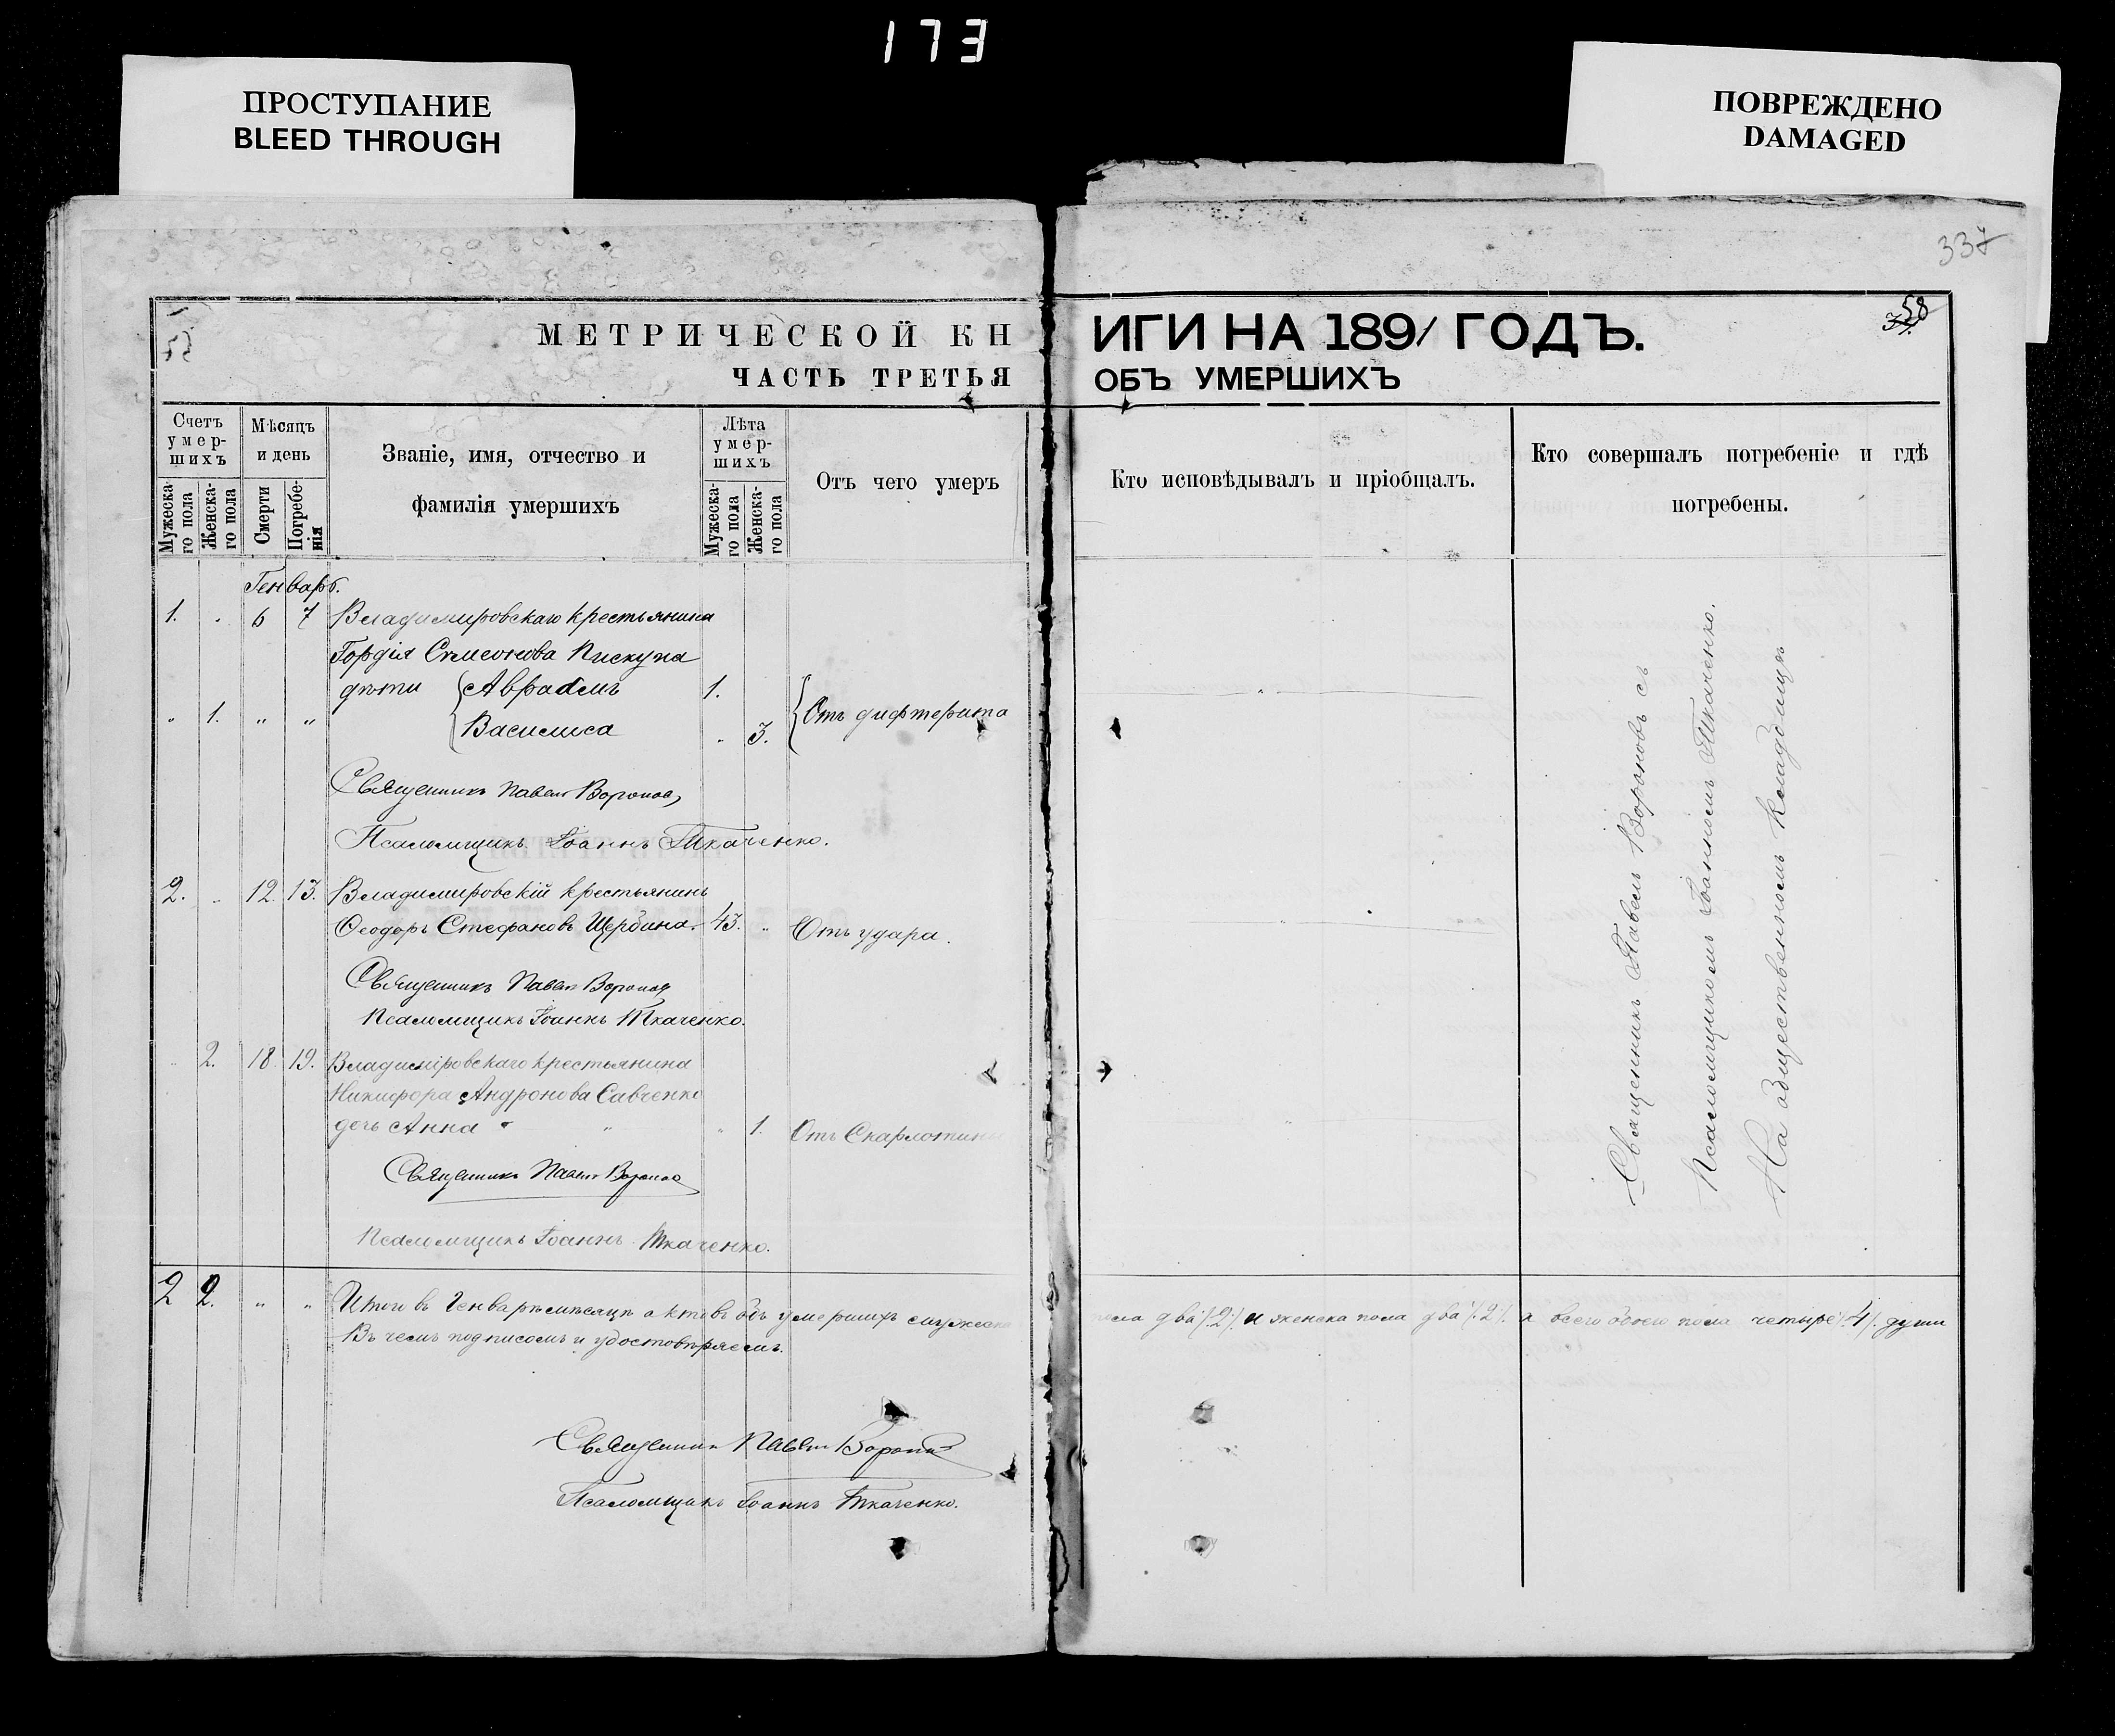 173
ПРОСТУПАНИЕ
BLEED THROUGH
ПОВРЕЖДЕНО
DAMAGED
МЕТРИЧЕСКОЙ КН
ИГИ НА 1891 ГОДЪ.
58
ЧАСТЬ ТРЕТЬЯ
ОБЪ УМЕРШИХЪ
Счетъ умер-шихъ
Мужеска-го пола
Женска-го пола
Мѣсяцъ и день
Смерти
Погребе-нія
Званіе, имя, отчество и
фамилія умершихъ
Лѣта умер-шихъ
Мужеска-го пола
Женска-го пола
Отъ чего умеръ
Кто исповѣдывалъ и пріобщалъ.
Кто совершалъ погребеніе и гдѣ
погребены.
Генварь.
1. 6 7 Владимировскаго крестьянина
Гордія Симеонова Пискуна
дѣти Авраамъ 1.
1. " " Василиса " 3. Отъ дифтерита
Священникъ Павелъ Вороновъ
Псаломщикъ Іоаннъ Ткаченко.
2. " 12. 13. Владимировскій крестьянинъ
Ѳеодоръ Стефановъ Щербина. 43. " Отъ удара.
Священникъ Павелъ Вороновъ
Псаломщикъ Іоаннъ Ткаченко.
2. 18 19. Владиміровскаго крестьянина
Никифора Андронова Савченко
дочь Анна " 1. Отъ Скарлотины
Священникъ Павелъ Вороновъ
Псаломщикъ Іоаннъ Ткаченко.
Священникъ Павелъ Вороновъ съ
Псаломщикомъ Іоанномъ Ткаченко.
На общественномъ кладбищѣ
2 2. " " Итого въ Генварѣ мѣсяцѣ актовъ объ умершихъ мужеска пола два /:2:/ и женска пола два /:2:/ а всего обоего пола четыре /:4:/ души
Въ чемъ подписомъ и удостовѣряемъ.
Священникъ Павелъ Вороновъ
Псаломщикъ Іоаннъ Ткаченко.